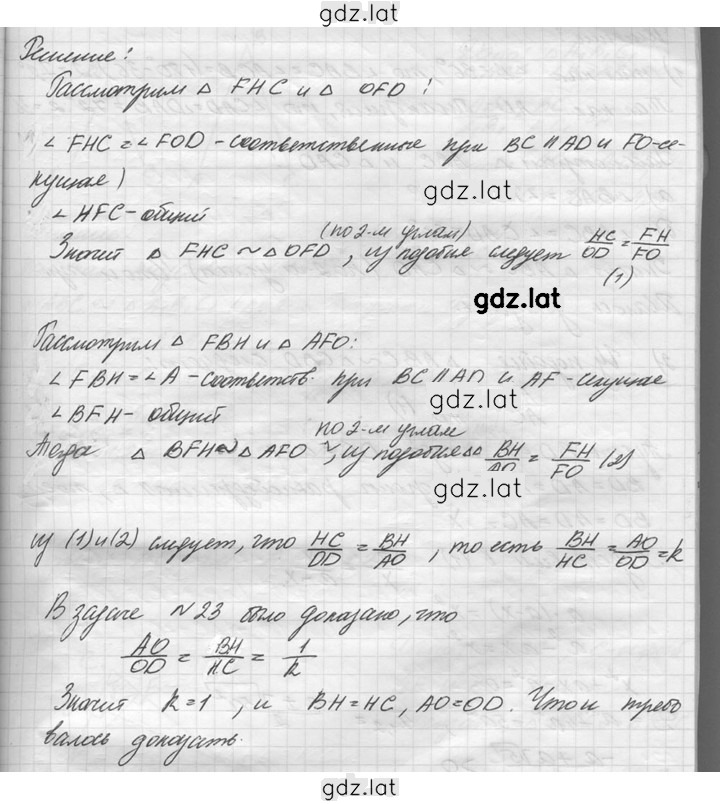 gdz.lat
Решение:
Рассмотрим △ FHC и △ OFD:
∠ FHC = ∠ FOD - соответственные при BC ∥ AD и FO-се-
кущае)
gdz.lat
∠ HFC - общий
(по 2-м углам)
Значит △ FHC ~ △ OFD, из подобия следует HC/OD = FH/FO
(1)
gdz.lat
Рассмотрим △ FBH и △ AFO:
∠ FBH = ∠ A - соответств. при BC ∥ AD и AF - секущае
gdz.lat
∠ BFH - общий
по 2-м углам
Тогда △ BFH ~ △ AFO, из подобия △ BH/AO = FH/FO (2)
gdz.lat
из (1) и (2) следует, что HC/OD = BH/AO, то есть BH/HC = AO/OD = k
В задаче №23 было доказано, что
AO/OD = BH/HC = 1/k
Значит k=1, и BH=HC, AO=OD. Что и требо
валось доказать.
gdz.lat